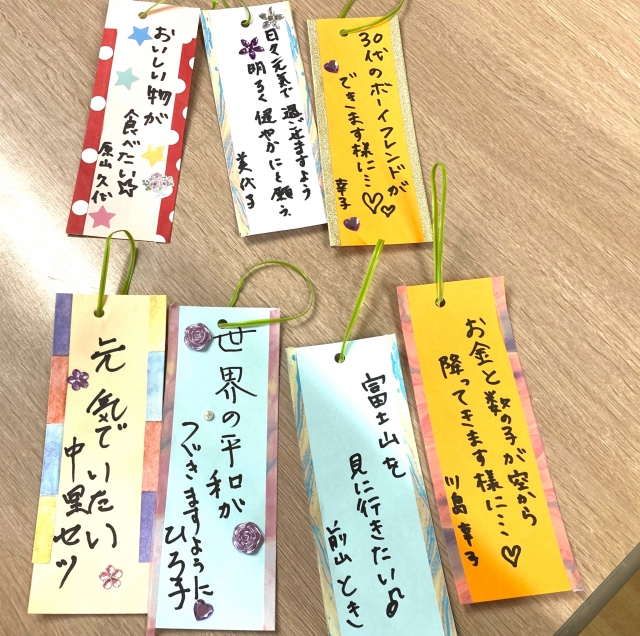 おいしい物が
食べたい☆
原山 久代
日々元気で過ごせますよう
明るく健やかにと願う。
美代子
30代のボーイフレンドが
できます様に…♡♡
幸子
元気でいたい
中里セツ
世界の平和が
つづきますように
ひろ子
富士山を
見に行きたい♪
前山 とき
お金と数の子が空から
降ってきます様に…♡
川島 幸子